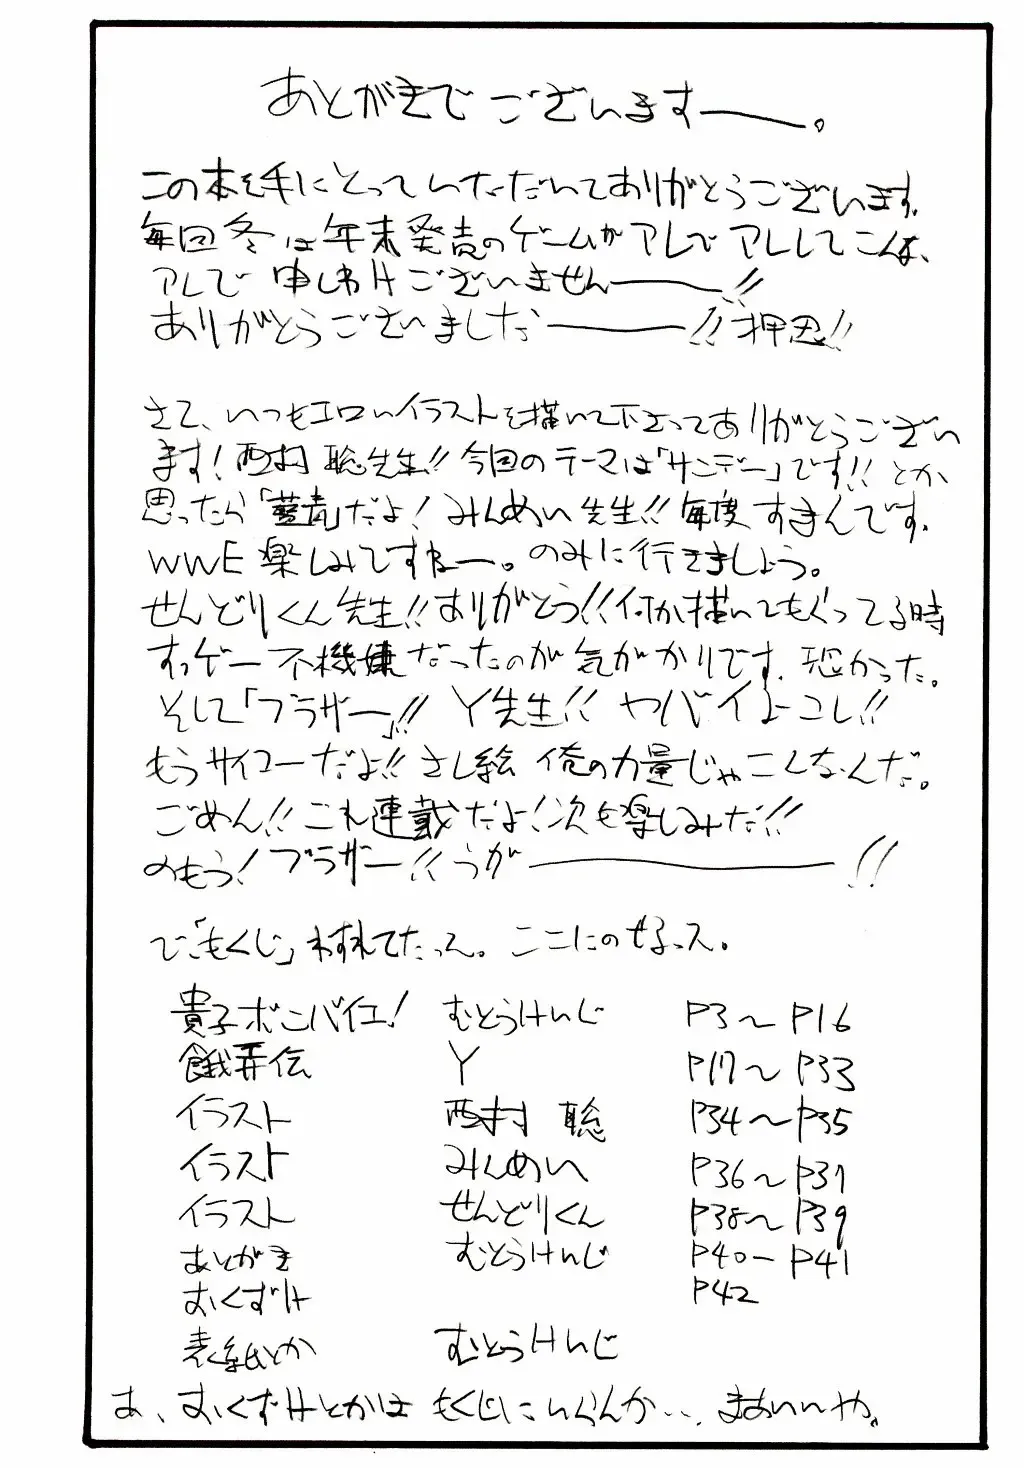 あとがきでございますー。
この本を手にとっていただいてありがとうございます。
毎回冬は年末発売のゲームがアレでアレしてこんな、
アレで申しわけございませんーー!!
ありがとうございましたーー!!押忍!!
さて、いつもエロいイラストを描いて下さってありがとうござい
ます!西村聡先生!!今回のテーマは「サンデー」です!!とか
思ったら「藍青」だよ!みんめい先生!!毎度すまんです。
WWE楽しみですねー。のみに行きましょう。
せんどりくん先生!!ありがとう!!何か描いてもぐってる時
すっげー不機嫌だったのが気がかりです。恐かった。
そして「ブラザー」!!Y先生!!ヤバイよコレ!!
もうサイコーだよ!!さし絵俺の力量じゃこんなんだ。
ごめん!!これ連載だよ!次も楽しみだ!!
のもう!ブラザー!!うがーー!!
で「もくじ」わすれてたっス。ここにのせるっス。
貴子ボンバイエ! むとうけいじ P3〜P16
餓弄伝 Y P17〜P33
イラスト 西村 聡 P34〜P35
イラスト みんめい P36〜P37
イラスト せんどりくん P38〜P39
あとがき むとうけいじ P40ーP41
おくづけ P42
表紙とか むとうけいじ
あ、おくずけとかはもくじにいらんか…。まあいいや。